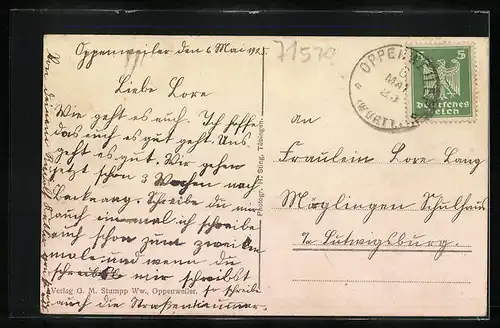 Oppenweiler den 6 Mai 1925.
71579
Liebe Lore
Wie geht es euch. Ich hoffe
das euch es gut geht. Uns
geht es gut. Wir gehen
jetzt schon 3 Wochen nach
Backnang. Schreibe du mir
auch einmal ich schreibe
auch schon zum zweiten
male und wenn du
mir schreibst
so schreibe
auch die Straßennummer.
Verlag G. M. Stumpp Ww., Oppenweiler.
Photogr. H. Sting, Tübingen.
OPPENWEILER
6
MAI
(WÜRTT.)
5
Deutsches
Reich
An
Fräulein Lore Lang
Möglingen Schulhaus
b/ Lutwigsburg.